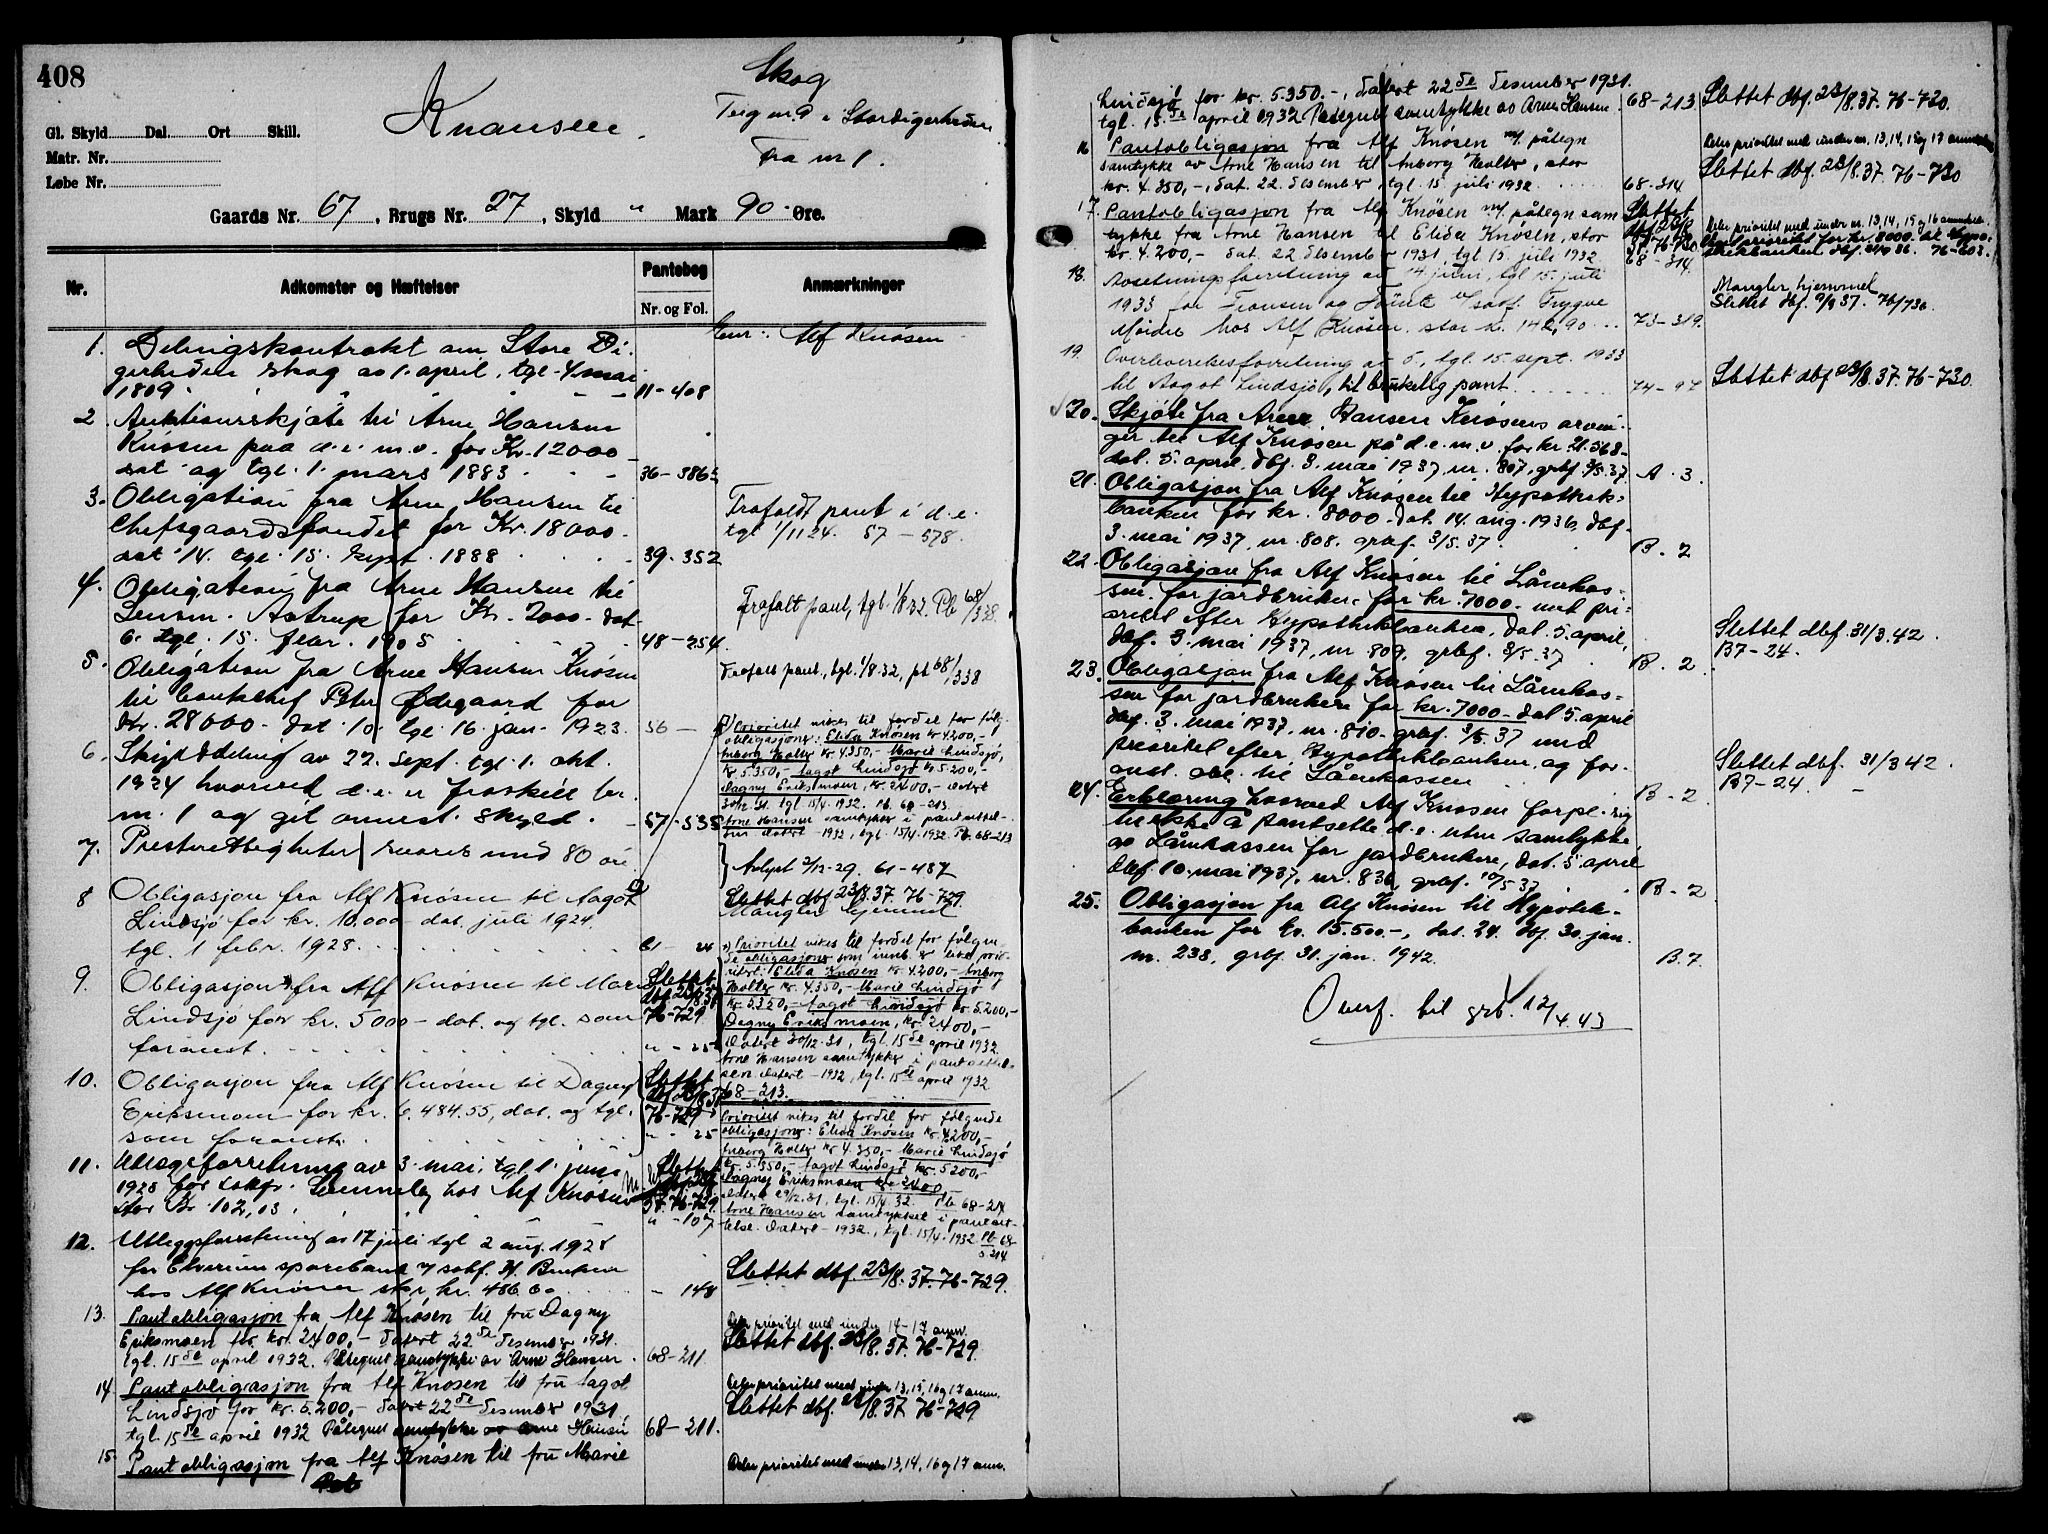 408
Knausen.
Skog
Teig nr. 9 i Stordigerheden
Fra nr 1.
Gl. Skyld Dal. Ort Skill.
Matr. Nr.
Løbe Nr.
Gaards Nr. 67, Brugs Nr. 27, Skyld " Mark 90 Øre.
Nr. Adkomster og Hæftelser Pantebog Nr. og Fol. Anmærkninger
Eier: Alf Knøsen
1. Delingskontrakt om Store Di-
gerheden skog av 1. april, tgl. 4 mai
1809 11-408
2. Auktionsskjøte til Arne Hansen
Knøsen paa d.e. m.v. for Kr. 12000
dat og tgl. 1. mars 1883 36-386
3. Obligation fra Arne Hansen til
Chefsgaardsfondet for Kr. 18000-
dat 14. tgl. 15. sept. 1888 39-352
Frafaldt pant i d.e.
tgl 1/11 24. 57-578.
4. Obligation fra Arne Hansen til
Lensm. Astrup for Kr. 2000- dat
6. tgl. 15. febr. 1905 48-254
Frafalt pant, tgl. 1/8 32. Pb 68/338.
5. Obligation fra Arne Hansen Knøsen
til banksjef Peter Ødegaard for
Kr. 28000- dat 10. tgl 16. jan. 1923. 56-
Frafalt pant, tgl. 1/8.32, pb 68/338
6. Skylddeling av 22. sept. tgl. 1. okt.
1924 hvorved d.e. er fraskilt br.
nr. 1 og git anmerkt. skyld. 57-535
Prioritet vikes til fordel for følg.
obligasjoner: Elida Knøsen kr 4200,-
Inborg Holter kr. 4.350,- Marie Lindsjø,
kr 5.350,- Aagot Lindsjø kr 5.200,-
Dagny Eriksmoen, kr. 2400,- Datert
30/12 31. tgl 15/4. 1932. Pb. 68-213.
Arne Hansen samtykker i pantsettel-
sen datert - 1932, tgl. 15/4-1932. Pb 68-213
7. Presterettigheter svares med 80 øre
Avlyst 2/12-29. 61-487
8 Obligasjon fra Alf Knøsen til Aagot
Lindsjø for kr. 10.000- dat. juli 1924.
tgl. 1 febr. 1928. 61-24
Slettet dbf 23/8.37. 76-729.
Mangler hjemmel
9. Obligasjon fra Alf Knøsen til Marie
Lindsjø for kr. 5000- dat. og tgl. som
foranst. " - 25
Slettet
dbf 23/8 37
76-729.
Prioritet vikes til fordel for følgen-
de obligasjoner som innb. er like prio-
ritert: Elida Knøsen kr 4.200,- Inborg
Holter kr. 4.350,- Marie Lindsjø
kr. 5.350,- Aagot Lindsjø kr. 5.200,-
Dagny Eriksmoen, kr. 2400,-
Datert 30/12-31, tgl. 15de april 1932.
Arne Hansen samtykker i pantsettel-
sen datert - 1932, tgl. 15de april 1932
68-213.
10. Obligasjon fra Alf Knøsen til Dagny
Eriksmoen for kr. 6.484.55, dat. og tgl.
som foranst. " - 25
Slettet
dbf 23/8 37
76-729
Prioritet vikes til fordel for følgende
obligasjoner: Elida Knøsen kr. 4200,-
Inborg Holter kr 4.350,- Marie Lindsjø
kr. 5.350,- Aagot Lindsjø kr. 5200,-
Dagny Eriksmoen kr. 2400
Datert 29/12.31, tgl. 15/4 32. Pb 68-214
Arne Hansen samtykket i pantset-
telse. Datert - 1932, tgl. 15/4. 1932 Pb 68-
s. 214
11. Utlægsforretning av 3. mai, tgl 1. juni
1928 for sakfr. Lunnely hos Alf Knøsen
stor kr 102,03. " - 107
Slettet
37. 76-729.
12. Utleggsforretning av 17 juli tgl 2 aug. 1928
for Elverum sparebank v/ sakf. H. Breken
hos Alf Knøsen stor kr. 486.60 - 148
Slettet dbf. 23/8. 37. 76-729.
13. Pantobligasjon fra Alf Knøsen til fru Dagny
Eriksmoen for kr. 2400,- datert 22de desember 1931.
tgl. 15de april 1932. Påtegnet samtykke av Arne Hansen. 68-211
Deler prioritet med under 14-17 anm.
Slettet dbf. 23/8.37. 76-729.
14 Pantobligasjon fra Alf Knøsen til fru Aagot
Lindsjø for kr. 5.200,- datert 22de desember 1931,
tgl. 15de april 1932 Påtegnet samtykke av Arne Hansen 68-211.
Deler prioritet med under 13, 15, 16 og 17 anm.
Slettet dbf. 23/8.37. 76-729
15. Pantobligasjon fra Alf Knøsen til fru Marie
Deler prioritet med under 13, 14, 16 og 17 anm.
Lindsjø for kr. 5.350.-, datert 22de desember 1931.
tgl. 15.de april 1932 Påtegnet samtykke av Arne Hansen 68-213
Slettet dbf. 23/8.37. 76-730.
16 Pantobligasjon fra Alf Knøsen m/ påtegn
samtykke av Arne Hansen til Inborg Holter, stor
kr. 4.350,-, dat. 22. desember, tgl. 15. juli 1932 68-314
Deler prioritet med under nr. 13, 14, 15 og 17 anmerkte
Slettet dbf. 23/8.37. 76-730
17. Pantobligasjon fra Alf Knøsen m/ påtegn sam
tykke fra Arne Hansen til Elida Knøsen, stor
kr. 4.200,- dat. 22 desember 1931, tgl 15. juli 1932. 68-314.
Slettet
dbf 23/8
37. 76-730
Deler prioritet med under nr. 13, 14, 15 og 16 anmerkte
Viket prioritet for kr. 8000.- til Hypo-
thekbanken dbf. 21/9 36. 76-603.
18. Avsetningsforretning av 14 juni, tgl 15. juli
1933 for Fransen og Tounte v/ saof. Trygve
Moidre hos Alf Knøsen, stor kr. 142,90 73-319.
Mangler hjemmel
Slettet dbf. 9/9 37. 76/736.
19. Overleverelsesforretning av 5, tgl. 15. sept. 1933
til Aagot Lindsjø, til brukelig pant 74-97
Slettet dbf 23/8.37. 76-730.
20. Skjøte fra Arne Hansen Knøsens arvin-
ger til Alf Knøsen på d.e. m.v for kr. 21.568-
dat. 5. april, dbf. 3. mai 1937 nr. 807, grbf 3/5.37 A. 3.
21. Obligasjon fra Alf Knøsen til Hypothek-
banken for kr. 8000- dat. 14. aug. 1936, dbf.
3. mai 1937, nr. 808. grbf. 3/5.37. B. 2
22. Obligasjon fra Alf Knøsen til Lånekas-
sen for jordbrukere for kr. 7000.- med pri-
oritet efter Hypothekbanken, dat. 5. april,
dbf. 3. mai 1937, nr. 809, grbf. 3/5.37 B. 2
Slettet dbf. 31/3.42.
B7-24.
23. Obligasjon fra Alf Knøsen til Lånekas-
sen for jordbrukere for kr. 7000- dat 5. april
dbf. 3. mai 1937, nr. 810. grbf. 3/5.37 med
prioritet efter Hypothekbanken og for-
anst. obl. til Lånekassen B-2
Slettet dbf. 31/3 42.
B7-24.
24. Erklæring hvorved Alf Knøsen forpl. sig
til ikke å pantsette d.e. uten samtykke
av Lånekassen for jordbrukere, dat. 5. april
dbf. 10. mai 1937, nr. 836, grbf. 10/5.37 B-2
25. Obligasjon fra Alf Knøsen til Hypotek-
banken for kr. 15.500.-, dat. 24. dbf. 30. jan.
nr. 238, grbf. 31. jan. 1942. B.7.
Overf. til grb. 12/4.43